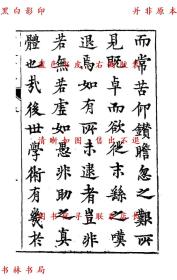 黑白影印
并非原本
而常苦仰鑽瞻忽之難所
見既卓而欲從末繇之嘆
退焉如有所未逮者豈非
若無若虛如愚非助之真
體也哉後世學術有幾於
清晰如图 售出不退
书林书局
制作